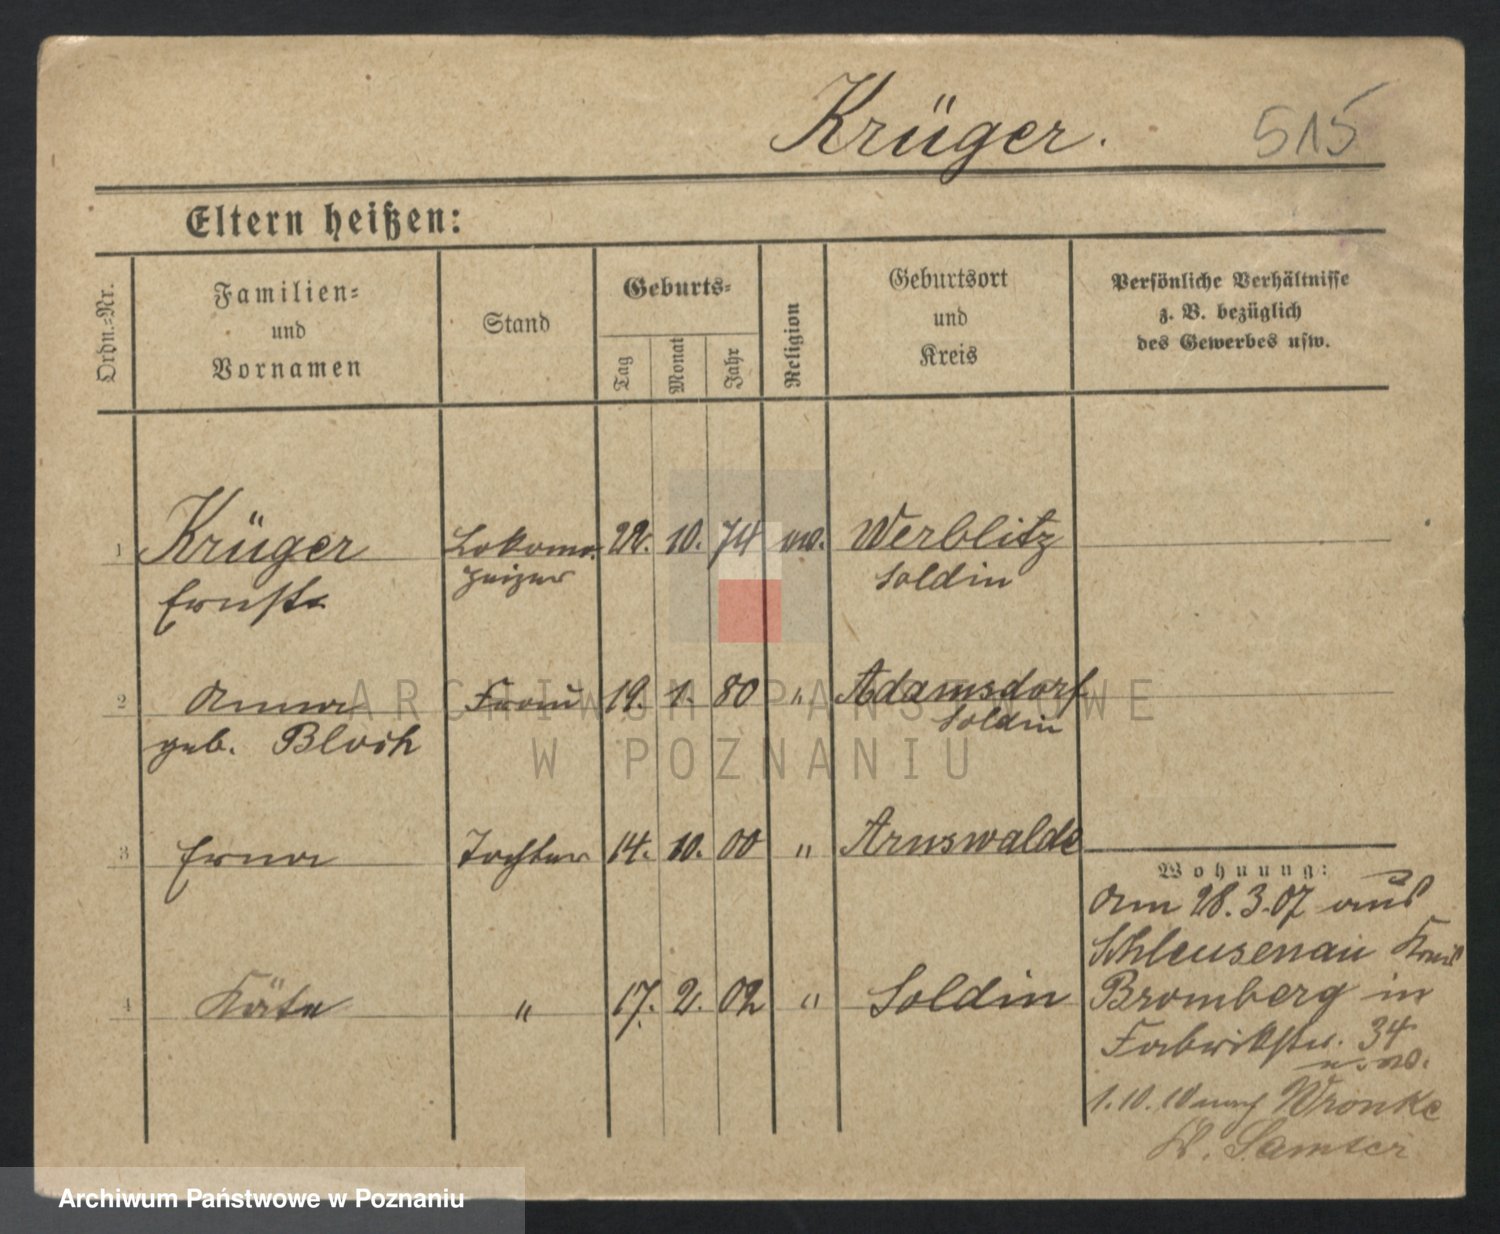 Krüger. 515
Eltern heißen:
Ordn.=Nr.
Familien=
und
Vornamen
Stand
Geburts=
Tag
Monat
Jahr
Religion
Geburtsort
und
Kreis
Persönliche Verhältnisse
z. B. bezüglich
des Gewerbes usw.
1 Krüger Lokomo. 22. 10. 74 ev. Werblitz
Ernst heizer Soldin
2 Anna Frau 19. 1. 80 " Adamsdorf
geb. Bloch Soldin
3 Erna Tochter 14. 10. 00 " Arnswalde
4 Käte " 17. 2. 02 " Soldin
Wohnung:
Am 28.3.07 aus
Schleusenau Kreis
Bromberg in
Fabrikstr. 34
1.10.10 nach Wronke
K. Samter
ARCHIWUM PAŃSTWOWE
W POZNANIU
Archiwum Państwowe w Poznaniu